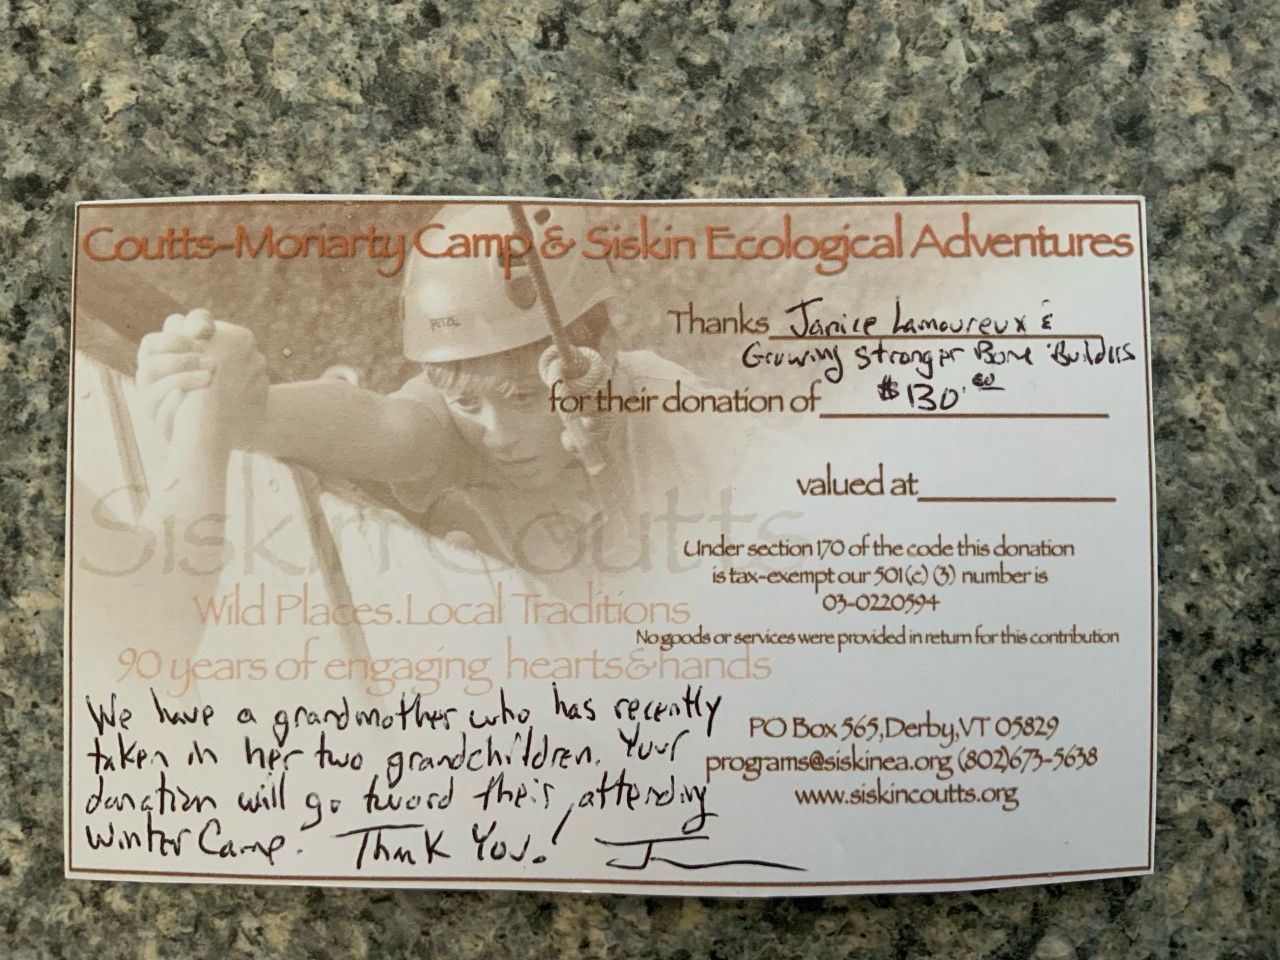 Coutts-Moriarty Camp & Siskin Ecological Adventures
PETZL
Thanks Janice Lamoureux &
Growing Stronger Bone Builders
for their donation of $130.00
valued at
Siskin Coutts
Under section 170 of the code this donation
is tax-exempt our 501(c) (3) number is
03-0220594
Wild Places.Local Traditions
No goods or services were provided in return for this contribution
90 years of engaging hearts&hands
We have a grandmother who has recently
taken in her two grandchildren. Your
donation will go toward their attending
Winter Camp. Thank You!
PO Box 565,Derby,VT 05829
programs@siskinea.org (802)673-5638
www.siskincoutts.org